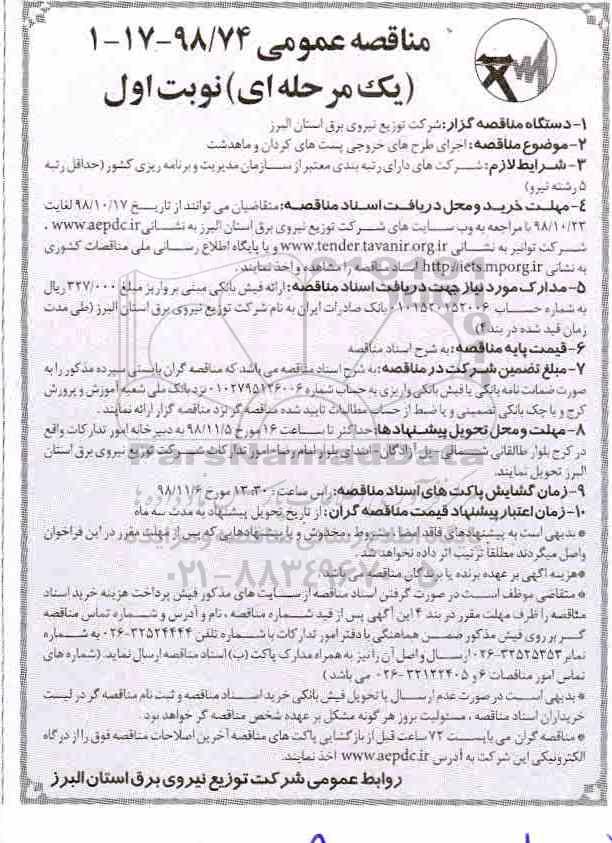 مناقصه عمومی ۹۸/۷۴-۱۷-۱
(یک مرحله ای) نوبت اول
۱- دستگاه مناقصه گزار: شرکت توزیع نیروی برق استان البرز
۲- موضوع مناقصه: اجرای طرح های خروجی پست های کردان و ماهدشت
۳- شرایط لازم: شرکت های دارای رتبه بندی معتبر از سازمان مدیریت و برنامه ریزی کشور (حداقل رتبه
۵ رشته نیرو)
۴- مهلت خرید و محل دریافت اسناد مناقصه: متقاضیان می توانند از تاریخ ۹۸/۱۰/۱۷ لغایت
۹۸/۱۰/۲۳ با مراجعه به وب سایت های شرکت توزیع نیروی برق استان البرز به نشانی www.aepdc.ir ،
شرکت توانیر به نشانی www.tender.tavanir.org.ir و یا پایگاه اطلاع رسانی ملی مناقصات کشوری
به نشانی http://iets.mporg.ir اسناد مناقصه را مشاهده و اخذ نمایند.
۵- مدارک مورد نیاز جهت دریافت اسناد مناقصه: ارائه فیش بانکی مبنی بر واریز مبلغ ۳۲۷/۰۰۰ ریال
به شماره حساب ۰۱۰۱۵۳۰۱۵۲۰۰۶ بانک صادرات ایران به نام شرکت توزیع نیروی برق استان البرز (طی مدت
زمان قید شده در بند ۴)
۶- قیمت پایه مناقصه: به شرح اسناد مناقصه
۷- مبلغ تضمین شرکت در مناقصه: به شرح اسناد مناقصه می باشد که مناقصه گران بایستی سپرده مذکور را به
صورت ضمانت نامه بانکی یا فیش بانکی واریزی به حساب شماره ۰۱۰۲۷۹۵۱۲۶۰۰۶ نزد بانک ملی شعبه آموزش و پرورش
کرج و یا چک بانکی تضمینی و یا ضبط از حساب مطالبات تایید شده مناقصه گر نزد مناقصه گزار ارائه نمایند.
۸- مهلت و محل تحویل پیشنهادها: حداکثر تا ساعت ۱۶ مورخ ۹۸/۱۱/۵ به دبیرخانه امور تدارکات واقع
در کرج بلوار طالقانی شمالی - پل آزادگان - ابتدای بلوار امام رضا - امور تدارکات شرکت توزیع نیروی برق استان
البرز تحویل نمایند.
۹- زمان گشایش پاکت های اسناد مناقصه: راس ساعت ۱۳:۳۰ مورخ ۹۸/۱۱/۶
۱۰- زمان اعتبار پیشنهاد قیمت مناقصه گران: از تاریخ تحویل پیشنهاد به مدت سه ماه
* بدیهی است به پیشنهادهای فاقد امضا، مشروط، مخدوش و یا پیشنهادهایی که پس از مهلت مقرر در این فراخوان
واصل میگردند مطلقاً ترتیب اثر داده نخواهد شد.
* هزینه آگهی بر عهده برنده یا برندگان مناقصه می باشد.
* متقاضی موظف است در صورت گرفتن اسناد مناقصه از سایت های مذکور فیش پرداخت هزینه خرید اسناد
مناقصه را ظرف مهلت مقرر در بند ۴ این آگهی پس از قید شماره مناقصه، نام و آدرس و شماره تماس مناقصه
گر بر روی فیش مذکور ضمن هماهنگی با دفتر امور تدارکات با شماره تلفن ۳۲۵۲۴۴۴۴-۰۲۶ به شماره
نمابر ۳۲۵۲۵۳۵۳-۰۲۶ ارسال و اصل آن را نیز به همراه مدارک پاکت (ب) اسناد مناقصه ارسال نماید. (شماره های
تماس امور مناقصات ۶ و ۳۲۱۲۲۴۰۵-۰۲۶ می باشد)
* بدیهی است در صورت عدم ارسال یا تحویل فیش بانکی خرید اسناد مناقصه و ثبت نام مناقصه گر در لیست
خریداران اسناد مناقصه، مسئولیت بروز هر گونه مشکل بر عهده شخص مناقصه گر خواهد بود.
* مناقصه گران می بایست ۷۲ ساعت قبل از بازگشایی پاکت های مناقصه آخرین اصلاحات مناقصه فوق را از درگاه
الکترونیکی این شرکت به آدرس www.aepdc.ir اخذ نمایند.
روابط عمومی شرکت توزیع نیروی برق استان البرز
ParsNamadData
۰۲۱-۸۸۳۴۹۶۷۰